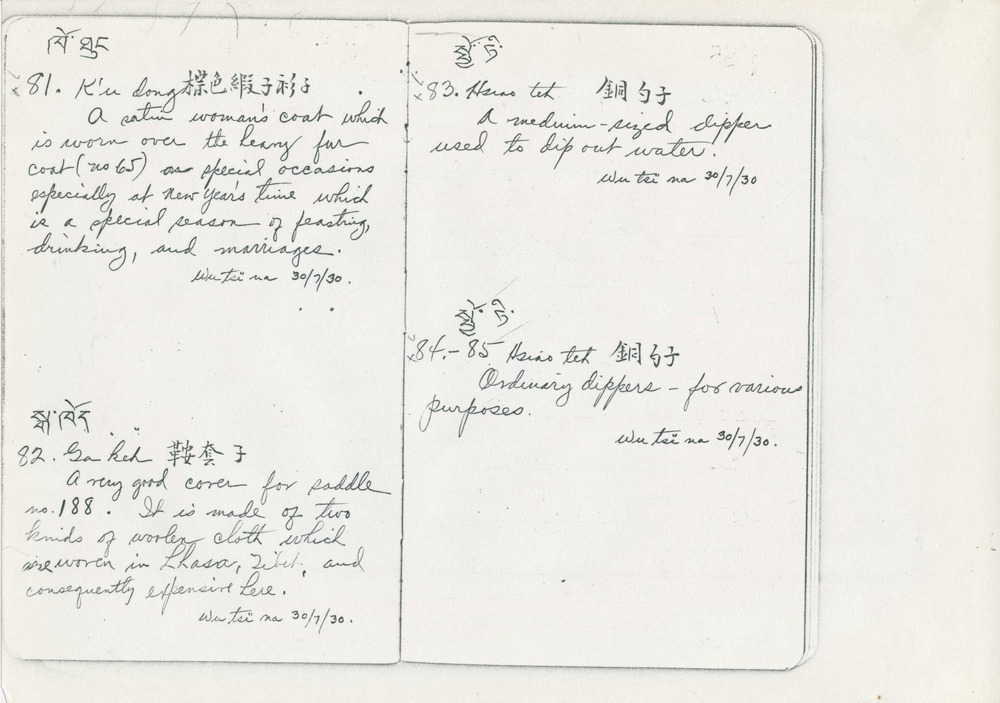 81. K'u dong 襟色緞子衫子
A satin woman's coat which
is worn over the heavy fur
coat (no 65) on special occasions
especially at New Year's time which
is a special season of feasting,
drinking, and marriages.
Wu tsï na 30/7/30.
82. Ga keh 鞍套子
A very good cover for saddle
no. 188. It is made of two
kinds of woolen cloth which
are woven in Lhasa, Tibet, and
consequently expensive here.
Wu tsï na 30/7/30.
83. Hsiao teh 銅勺子
A medium-sized dipper
used to dip out water.
Wu tsï na 30/7/30
84.-85 Hsiao teh 銅勺子
Ordinary dippers - for various
purposes.
Wu tsï na 30/7/30.